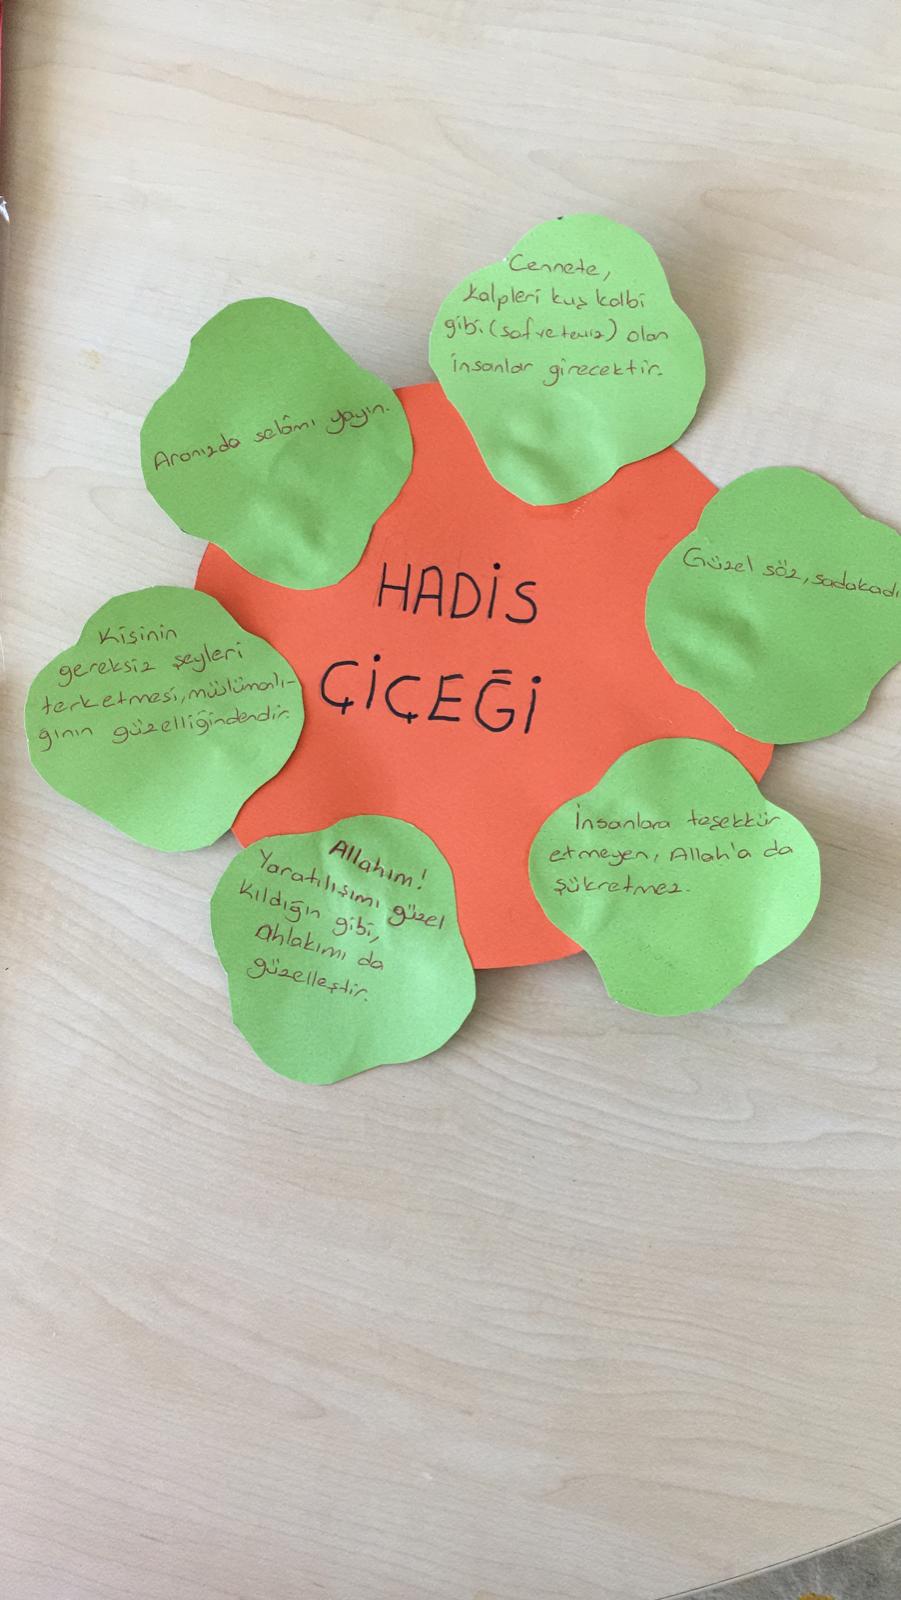 HADİS
ÇİÇEĞİ
Cennete,
kalpleri kuş kalbi
gibi (saf ve temiz) olan
insanlar girecektir.
Güzel söz, sadakadı
İnsanlara teşekkür
etmeyen, Allah'a da
şükretmez.
Allahım!
Yaratılışımı güzel
kıldığın gibi,
Ahlakımı da
güzelleştir.
Kişinin
gereksiz şeyleri
terketmesi, müslümanlı-
ğının güzelliğindendir.
Aranızda selâmı yayın.